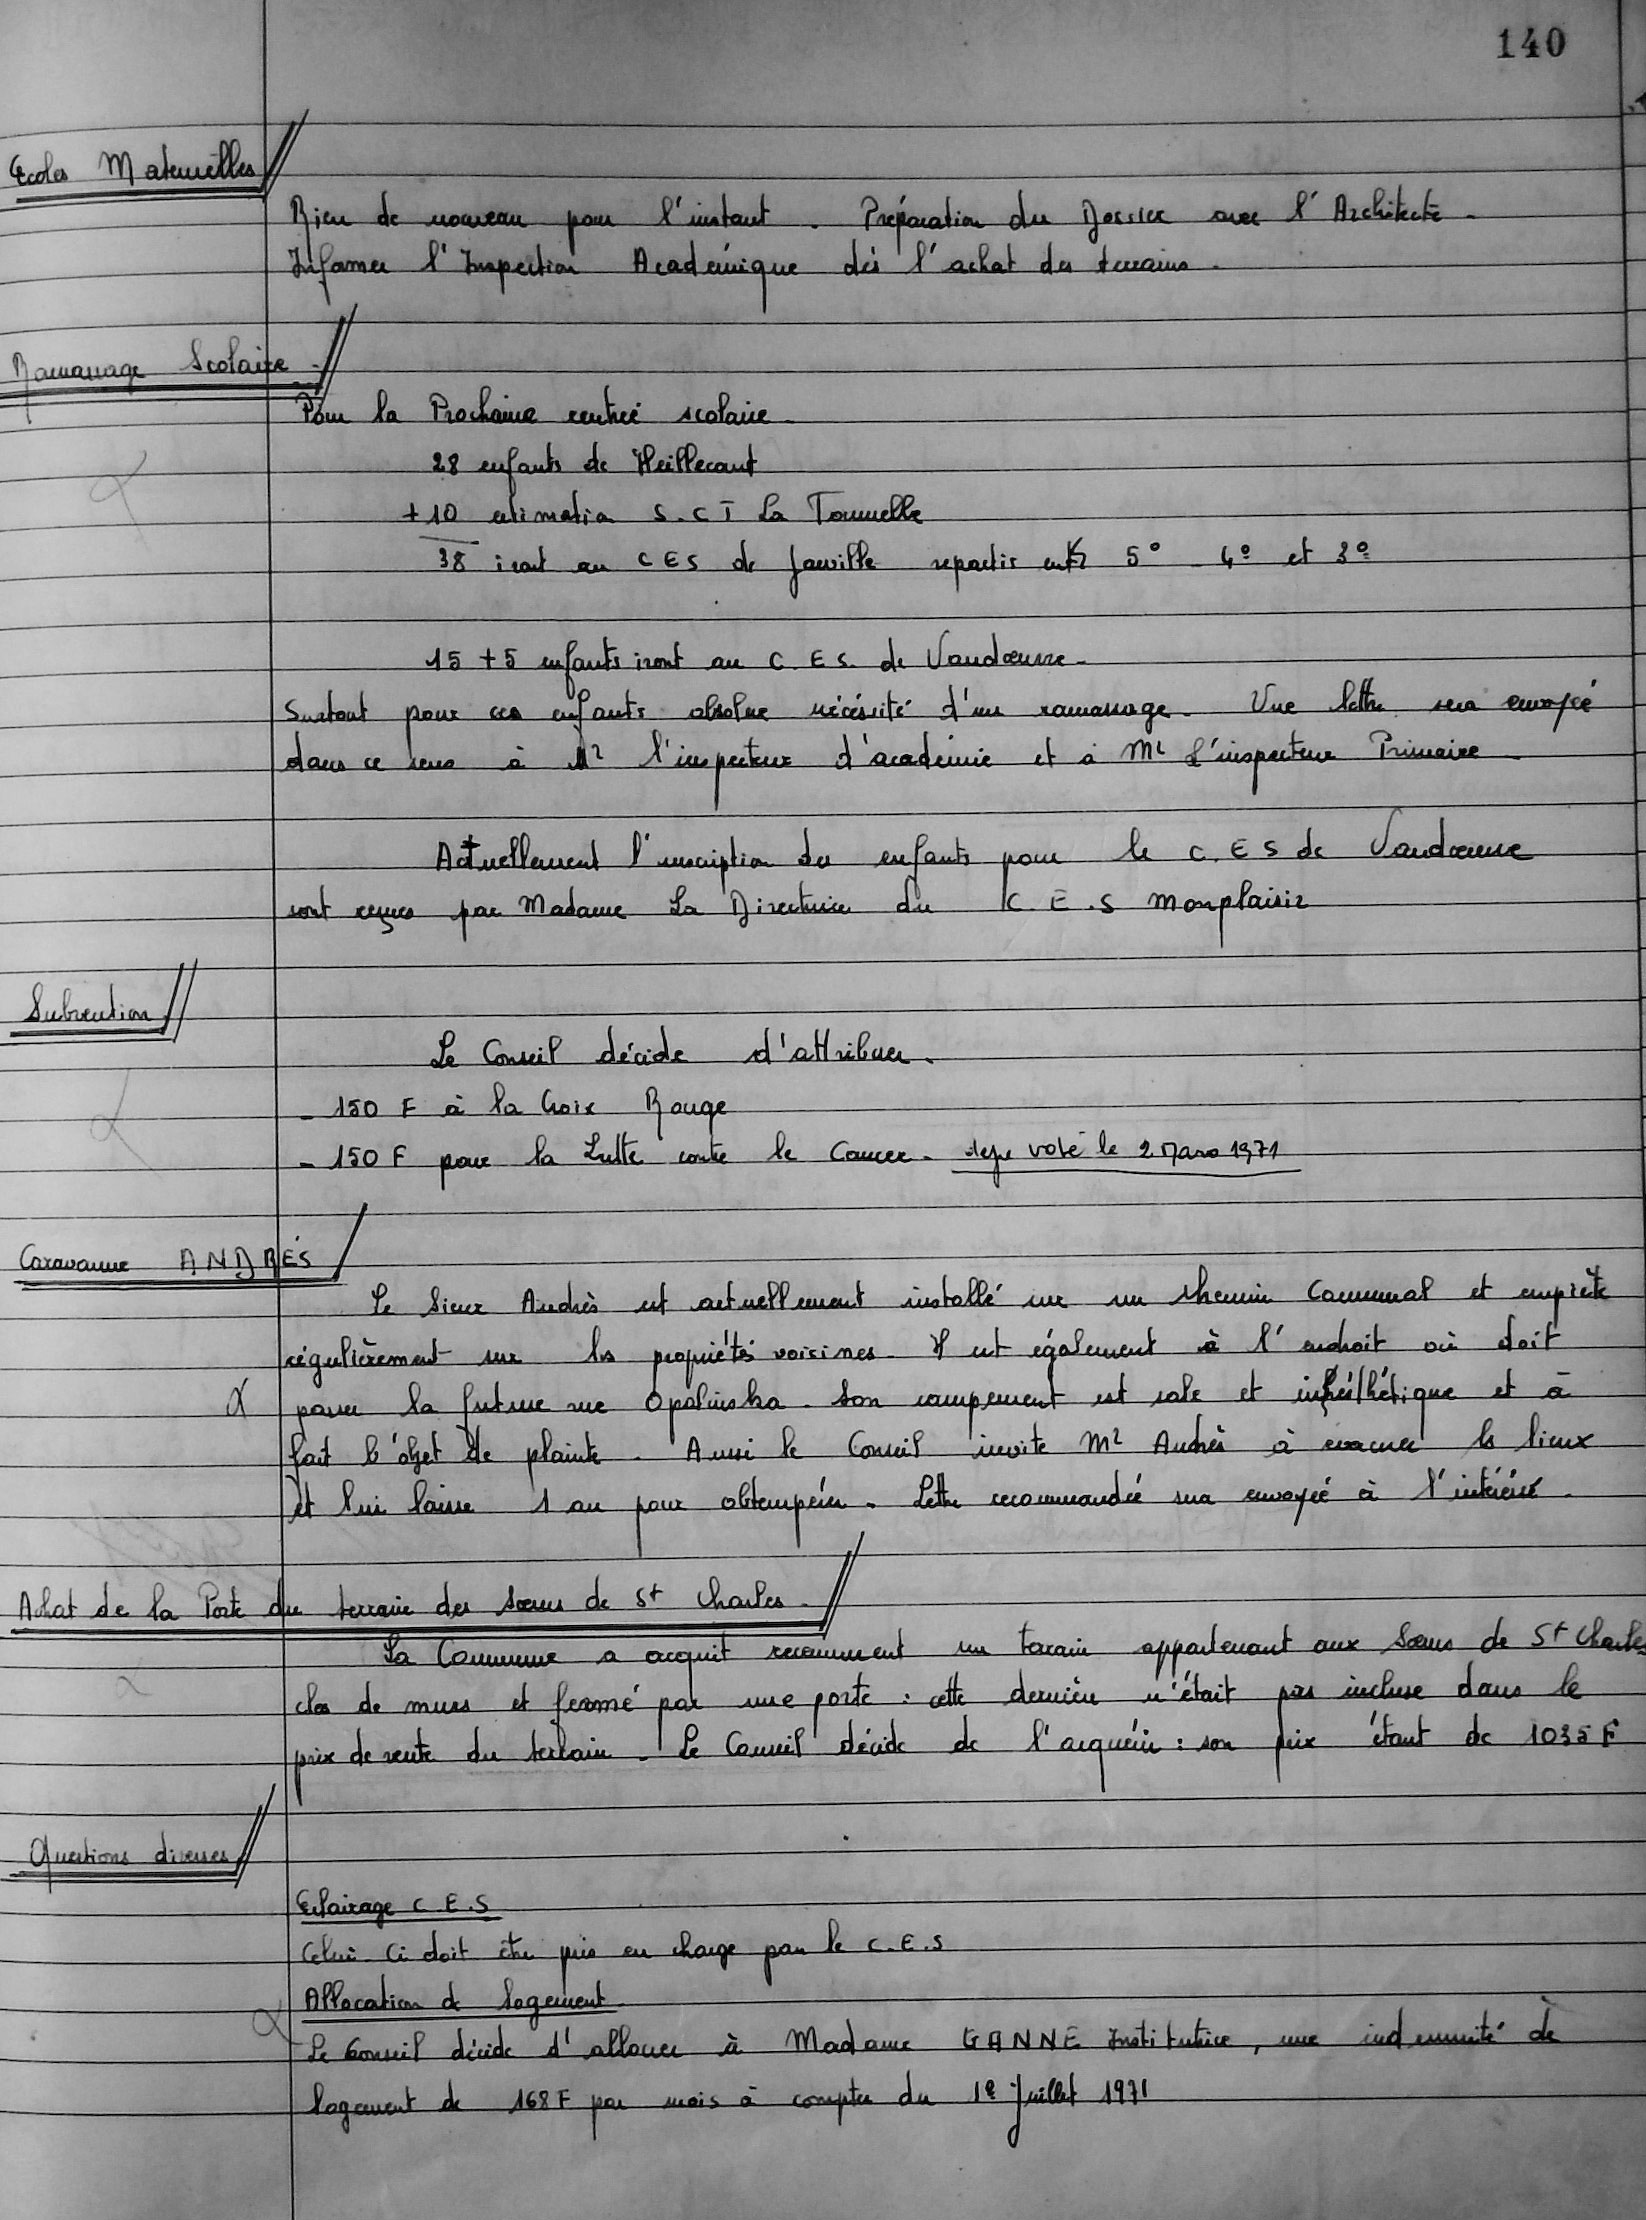 140
Ecoles Maternelles
Rien de nouveau pour l'instant. Préparation du Dossier avec l'Architecte.
Informer l'Inspection Académique dès l'achat des terrains.
Ramassage Scolaire.
Pour la Prochaine rentrée scolaire.
28 enfants de Heillecourt
+10 estimation S.C.I La Tournelle
38 iront au CES de Jarville repartis entre 5° - 4° et 3°
15 + 5 enfants iront au C.E.S. de Vandœuvre.
Surtout pour ces enfants absolue nécéssité d'un ramassage. Une lettre sera envoyée
dans ce sens à Mr l'inspecteur d'académie et à Mr L'inspecteur Primaire.
Actuellement l'inscription des enfants pour le C.E.S de Vandœuvre
sont reçues par Madame La Directrice du C.E.S Monplaisir
Subvention
Le Conseil décide d'attribuer.
- 150 F à la Croix Rouge
- 150 F pour la Lutte contre le Cancer. deja voté le 2 Mars 1971
Caravanne ANDRÉS
Le Sieur Andrès est actuellement installé sur un chemin Communal et empiète
régulièrement sur les propriétés voisines. Il est également à l'endroit où doit
passer la future rue Opalinska. Son campement est sale et inesthétique et à
fait l'objet de plainte. Aussi le Conseil invite Mr Andrès à evacuer les lieux
et lui laisse 1 an pour obtempérer. Lettre recommandée sera envoyée à l'intéréssé.
Achat de la Porte du terrain des sœurs de St Charles.
La Commune a acquit recemment un terrain appartenant aux Sœurs de St Charles
clos de murs et fermé par une porte : cette dernière n'était pas incluse dans le
prix de vente du terrain. Le Conseil décide de l'acquérir : son prix étant de 1035 F
Questions diverses
Eclairage C.E.S
Celui-Ci doit être pris en charge par le C.E.S
Allocation de logement.
Le Conseil décide d'allouer à Madame GANNE Institutrice, une indemnité de
logement de 168 F par mois à compter du 1e Juillet 1971